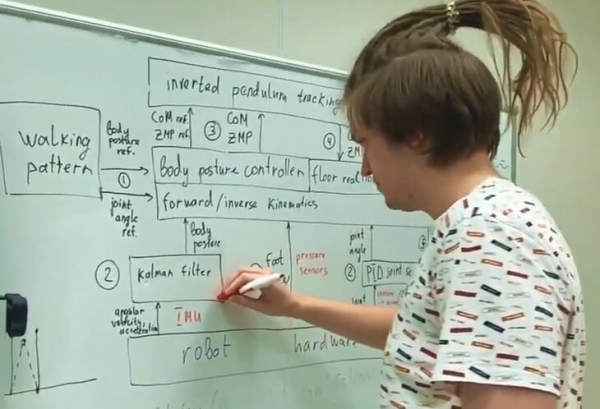 inverted pendulum tracking
CoM ref.
ZMP ref.
③
CoM
ZMP
④
walking
pattern
body
posture
ref.
①
joint
angle
ref.
Body posture controller
floor
forward/inverse kinematics
body
posture
②
Kalman filter
foot
pressure
sensors
joint
angle
②
PID joint
angular
velocity
acceleration
IMU
robot
hardware